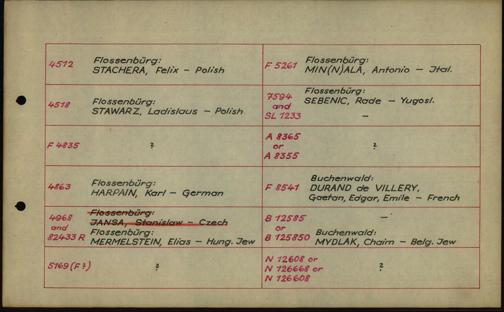 4512 Flossenbürg:
STACHERA, Felix – Polish
F 5261 Flossenbürg:
MIN(N)ALA, Antonio – Ital.
4518 Flossenbürg:
STAWARZ, Ladislaus – Polish
7594 and SL 1233 Flossenbürg:
SEBENIC, Rade – Yugosl.
–
F 4835 ?
A 8365
or ?
A 8355
4863 Flossenbürg:
HARPAIN, Karl – German
F 8541 Buchenwald:
DURAND de VILLERY,
Gaetan, Edgar, Emile – French
4968 Flossenbürg:
and JANSA, Stanislaw – Czech
82433 R Flossenbürg:
MERMELSTEIN, Elias – Hung. Jew
B 12585 –
or
B 125850 Buchenwald:
MYDLAK, Chaim – Belg. Jew
5169 (F?) ?
N 12608 or
N 126668 or ?
N 126608